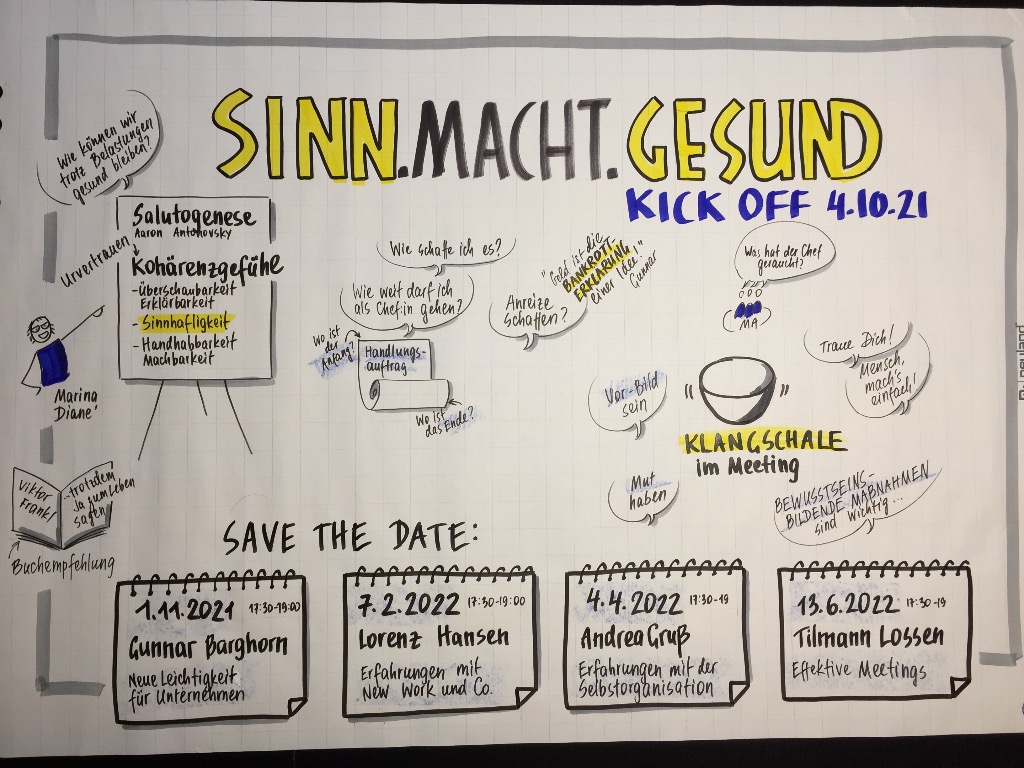 SINN.MACHT.GESUND
KICK OFF 4.10.21
Wie können wir
trotz Belastungen
gesund bleiben?
Salutogenese
Aaron Antonovsky
Urvertrauen
Kohärenzgefühe
- Überschaubarkeit
Erklärbarkeit
- Sinnhaftigkeit
- Handhabbarkeit
Machbarkeit
Marina
Diane'
Viktor
Frankl
...trotzdem
Ja zum Leben
sagen
Buchempfehlung
Wie schaffe ich es?
Wie weit darf ich
als Chef:in gehen?
Wo ist
der
Anfang?
Handlungs-
auftrag
Wo ist
das Ende?
Anreize
schaffen?
"Geld ist die
BANKROTT-
ERKLÄRUNG
einer Idee"
Gunnar
Was hat der Chef
geraucht?
MA
Vor-Bild
sein
Mut
haben
KLANGSCHALE
im Meeting
Traue Dich!
Mensch,
mach's
einfach!
BEWUSSTSEINS-
BILDENDE MAßNAHMEN
sind wichtig...
SAVE THE DATE:
1.11.2021 17:30-19:00
Gunnar Barghorn
Neue Leichtigkeit
für Unternehmen
7.2.2022 17:30-19:00
Lorenz Hansen
Erfahrungen mit
New Work und Co.
4.4.2022 17:30-19
Andrea Gruß
Erfahrungen mit der
Selbstorganisation
13.6.2022 17:30-19
Tilmann Lossen
Effektive Meetings
neuland